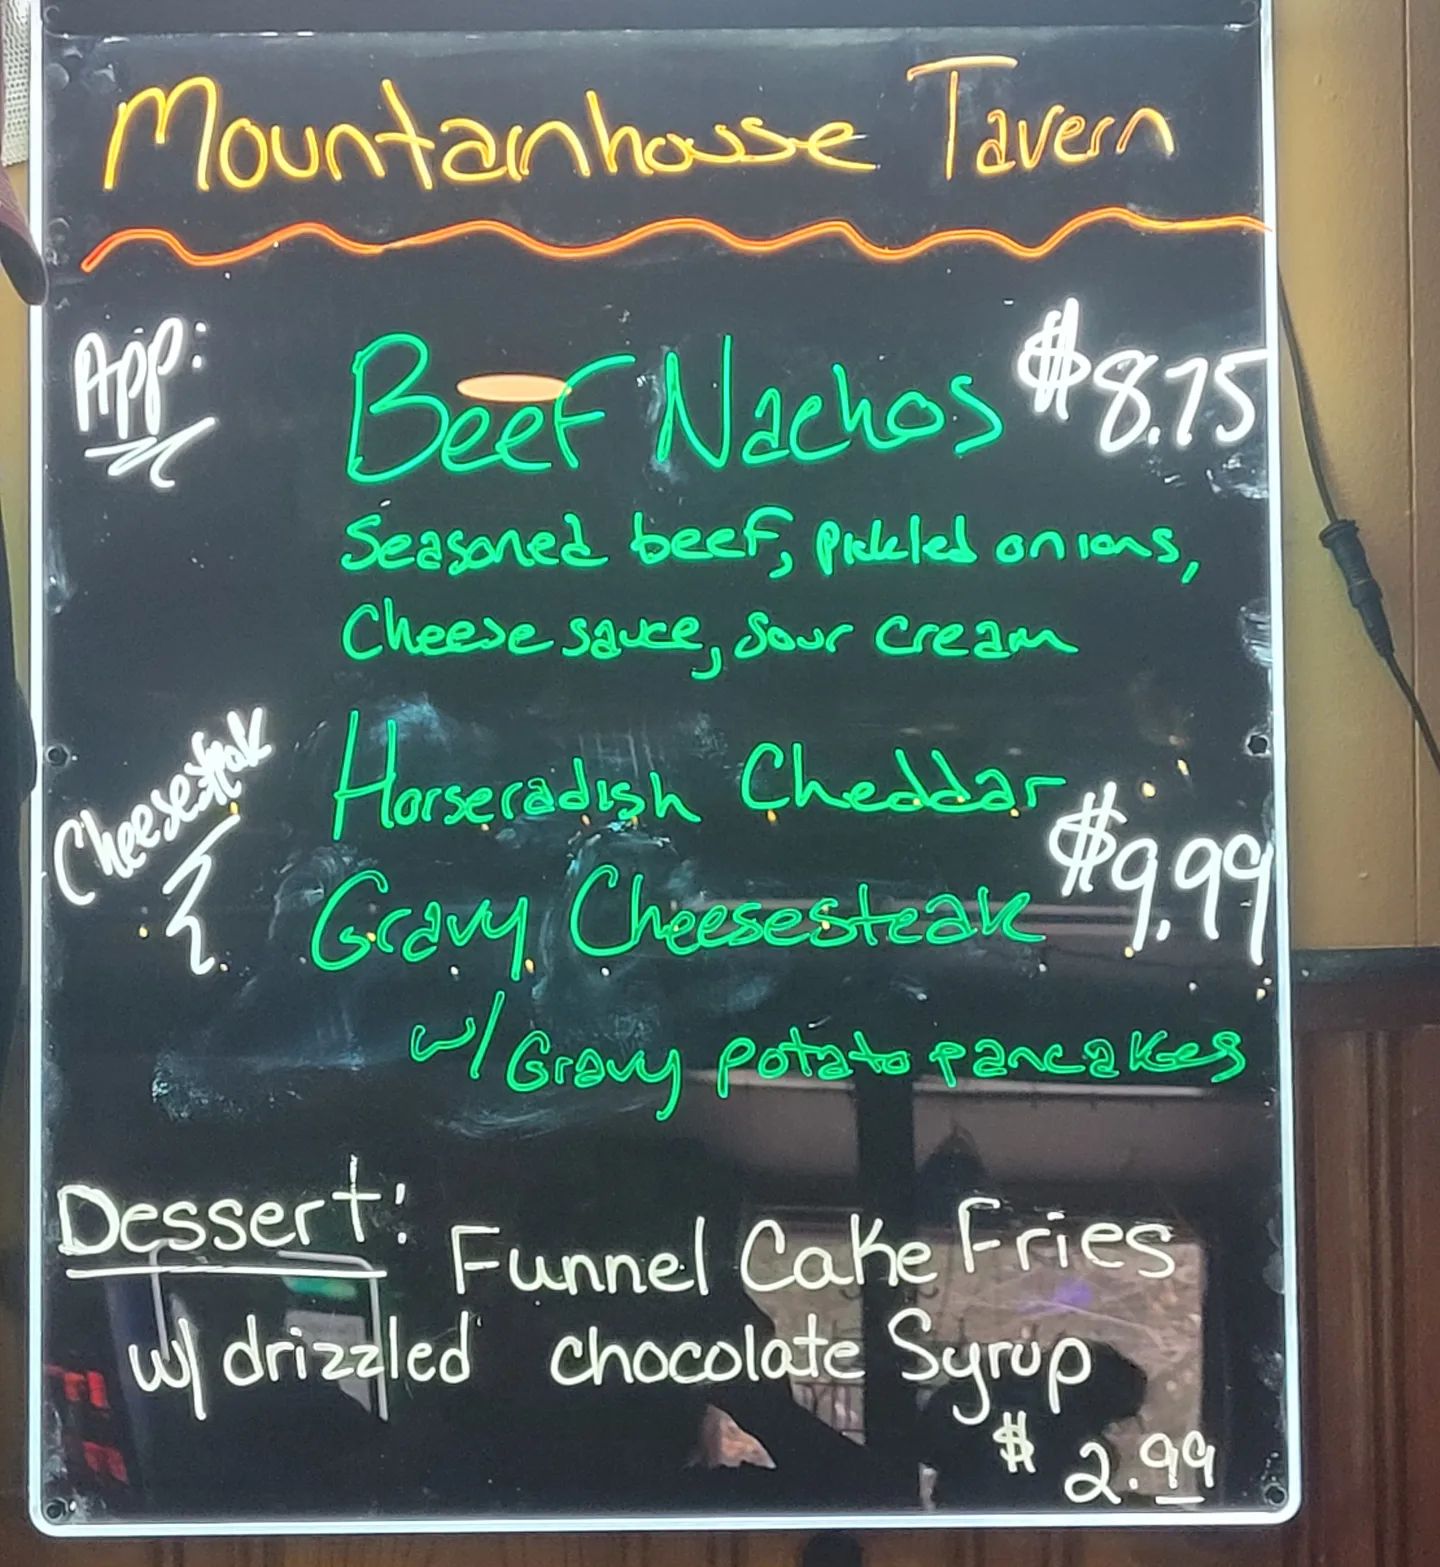 Mountainhouse Tavern
App:
Beef Nachos $8.75
Seasoned beef, pickled onions,
Cheese sauce, sour cream
Cheesesteak
Horseradish Cheddar
Gravy Cheesesteak $9.99
w/ Gravy potato pancakes
Dessert: Funnel Cake Fries
w/ drizzled chocolate Syrup
$2.99